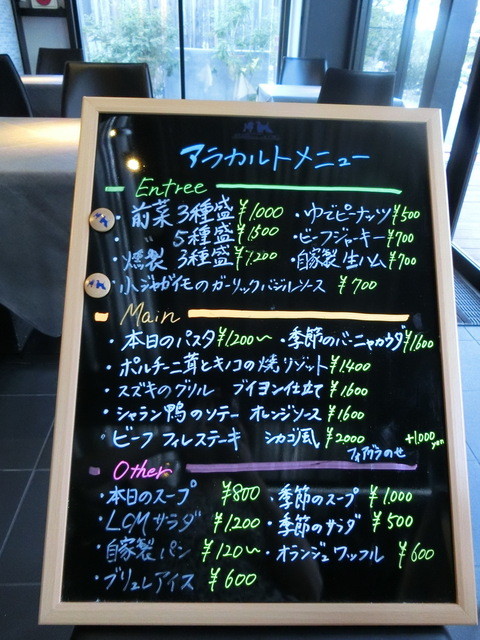 アラカルトメニュー
Entree
・前菜 3種盛 ¥1,000 ・ゆでピーナッツ ¥500
・ 〃 5種盛 ¥1,500 ・ビーフジャーキー ¥700
・燻製 3種盛 ¥1,200 ・自家製 生ハム ¥700
・小ジャガイモのガーリックバジルソース ¥700
Main
・本日のパスタ ¥1200〜 ・季節のバーニャカウダ ¥1,600
・ポルチーニ茸とキノコの焼リゾット ¥1,400
・スズキのグリル ブイヨン仕立て ¥1,600
・シャラン鴨のソテー オレンジソース ¥1,600
・ビーフ フィレステーキ シカゴ風 ¥2000 +1,000 yen
フォアグラのせ
Other
・本日のスープ ¥800 ・季節のスープ ¥1,000
・LCMサラダ ¥1,200 ・季節のサラダ ¥500
・自家製パン ¥120〜 ・オランジュワッフル ¥600
・ブリュレアイス ¥600